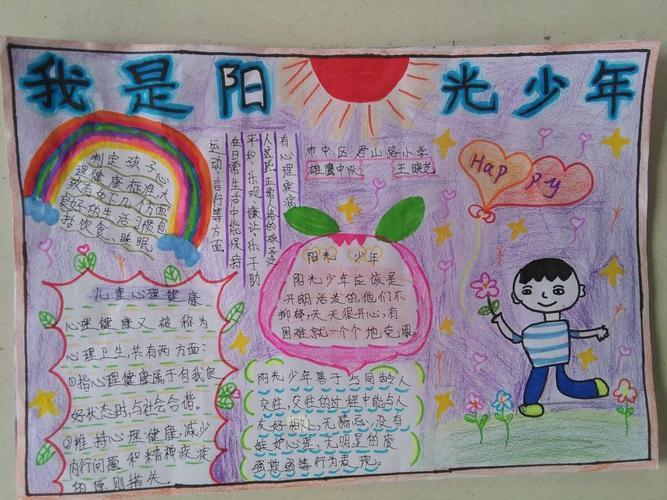 我是阳光少年
制定孩子心
理健康标准,大
致有如下几个方面
良好的生活习惯包
括饮食、睡眠
有心理疾病
人区比正常人格的孩子活
平和、乐观、康让、乐于助
在日常生活中能保持
运动、言行等方面
市中区君山路小学
雄鹰中队 王晓艺
Happy
阳光 少年
阳光少年应该是
开朗活泼的,他们不
抑郁,天天很开心,有
困难就一个个地克服。
儿童心理健康
心理健康又被称为
心理卫生,共有两方面:
①指心理健康属于自我良
好状态时,与社会合谐。
②维持心理健康,减少
内行问题和精神疾病
的原则措失
阳光少年善于与同龄人
交往,交往的过程中能与人
友好相处,无猜忌,没有
嫉妒心里,尤明显的皮
强欺弱等行为表现。